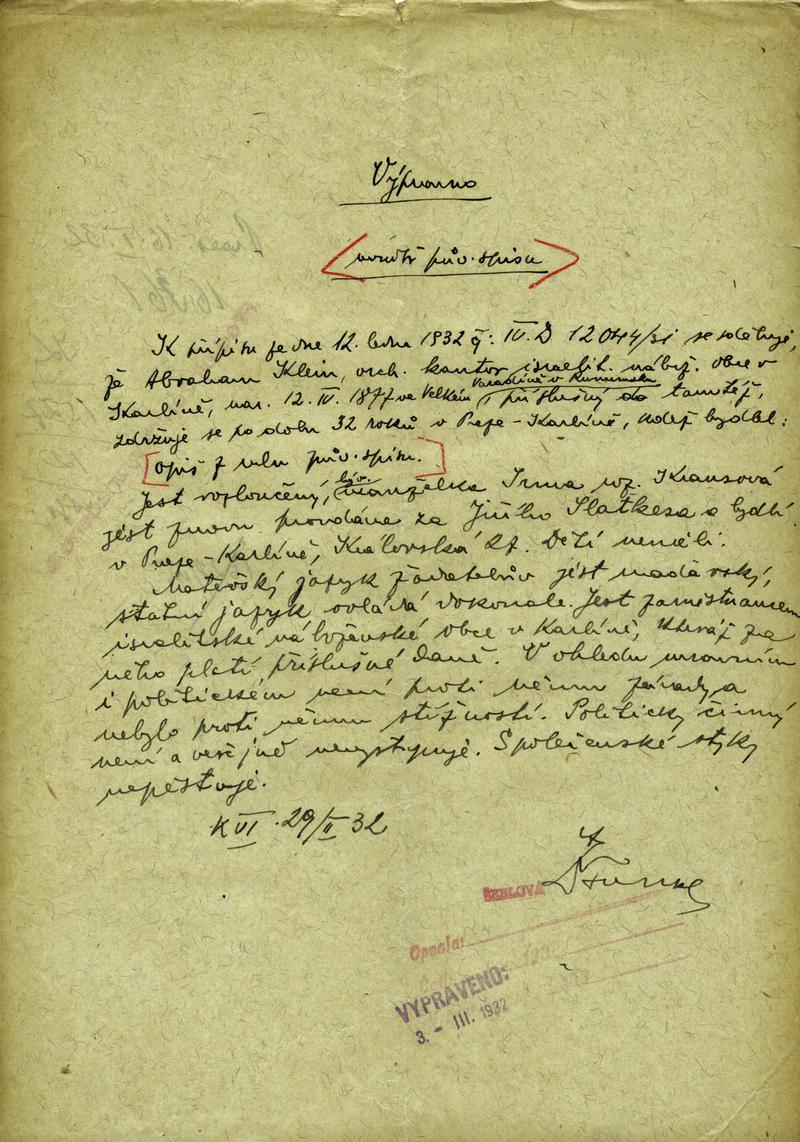 Výpravno
uvésti pův. spisu
K přípisu ze dne 12. ledna 1932 č: IV. D 12044/31 se sděluje,
že Abraham Klein, vrch. kantor israelit. nábož. obce v
Karlíně, nar. 12. IV. 1877 ve Velkém Varadíně v Rumunsku, příslušný do tamtéž,
zdržuje se po dobu 32 roků v Praze-Karlíně, kdež bydlel:
opis z rubu pův. spisu.
Jest rozloučený, býv. manželka Irma roz. Krausová
jest znovu provdána za Jiřího Slatkesa a bydlí
v Praze-Karlíně, Královská 27. Dětí neměli.
Mateřský jazyk žadatelův jest maďarský,
státní jazyk ovládá dokonale. Jest zaměstnancem
israelitské náboženské obce v Karlíně, kteráž za
něho platí příslušné daně. V ohledu mravním
i politickém není proti němu závady a
nebylo proti němu stížností. Politicky činný
není a veřejně nevystupuje. Společenské styky
nepěstuje.
K VI 29/II 32
ŠEBLOVÁ
Opsala:
VYPRAVENO:
3. - III. 1932